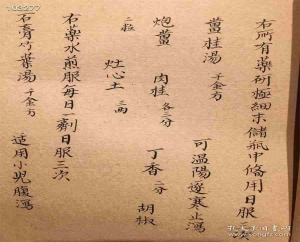 右所有藥研極細末儲瓶中備用日服
薑桂湯 千金方 可溫陽逐寒止瀉
炮薑 肉桂 各三分 丁香 二分 胡椒
二粒 灶心土 二兩
右藥水煎服每日一劑日服三次
石膏竹葉湯 千金方 适用小兒腹瀉
103277